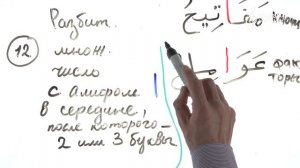 Разбит.
12 множ.
число
с алифом
в середине,
после которого –
2 или 3 буквы
مَفَاتِيحُ
ключи
عَوَامِلُ
фак
торы